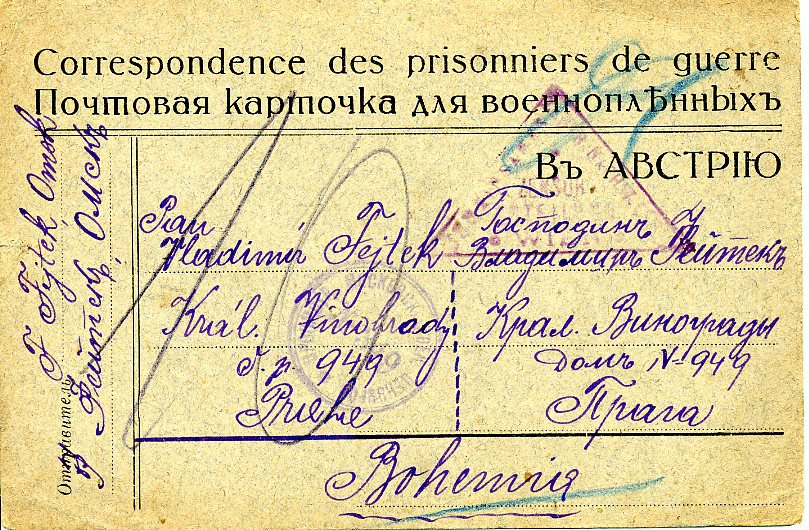 Correspondence des prisonniers de guerre
Почтовая карточка для военноплѣнныхъ
Въ АВСТРІЮ
Pan
Vladimír Fejtek
Král. Vinohrady
č. p. 949
Господинъ
Владимиръ Фейтекъ
Крал. Винограды
Домъ № 949
Прага
Bohemia
Отправитель
F Fejtek
Фейтекъ, Омскъ
10